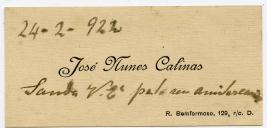 24-2-922
José Nunes Calinas
Sauda V. Exª pelo seu aniversario
R. Bemformoso, 129, r/c. D.